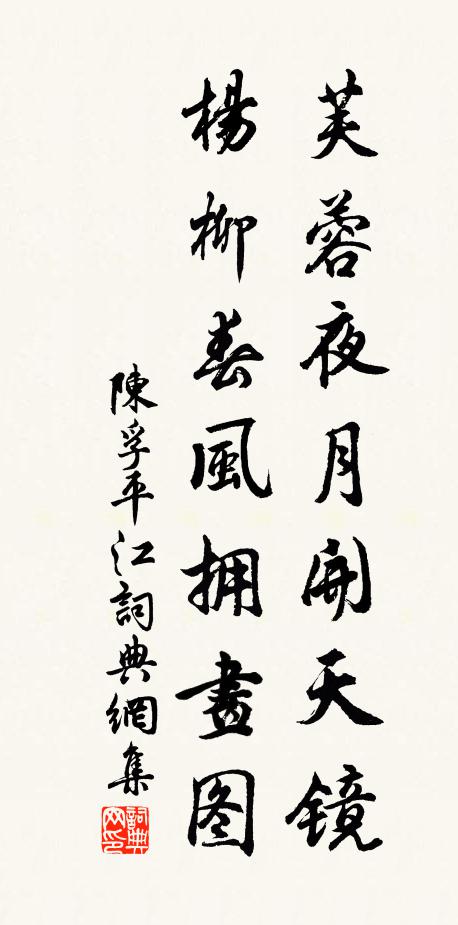 芙蓉夜月開天鏡
楊柳春風拥畫图
陳孚平江詞典網集
詞典网印